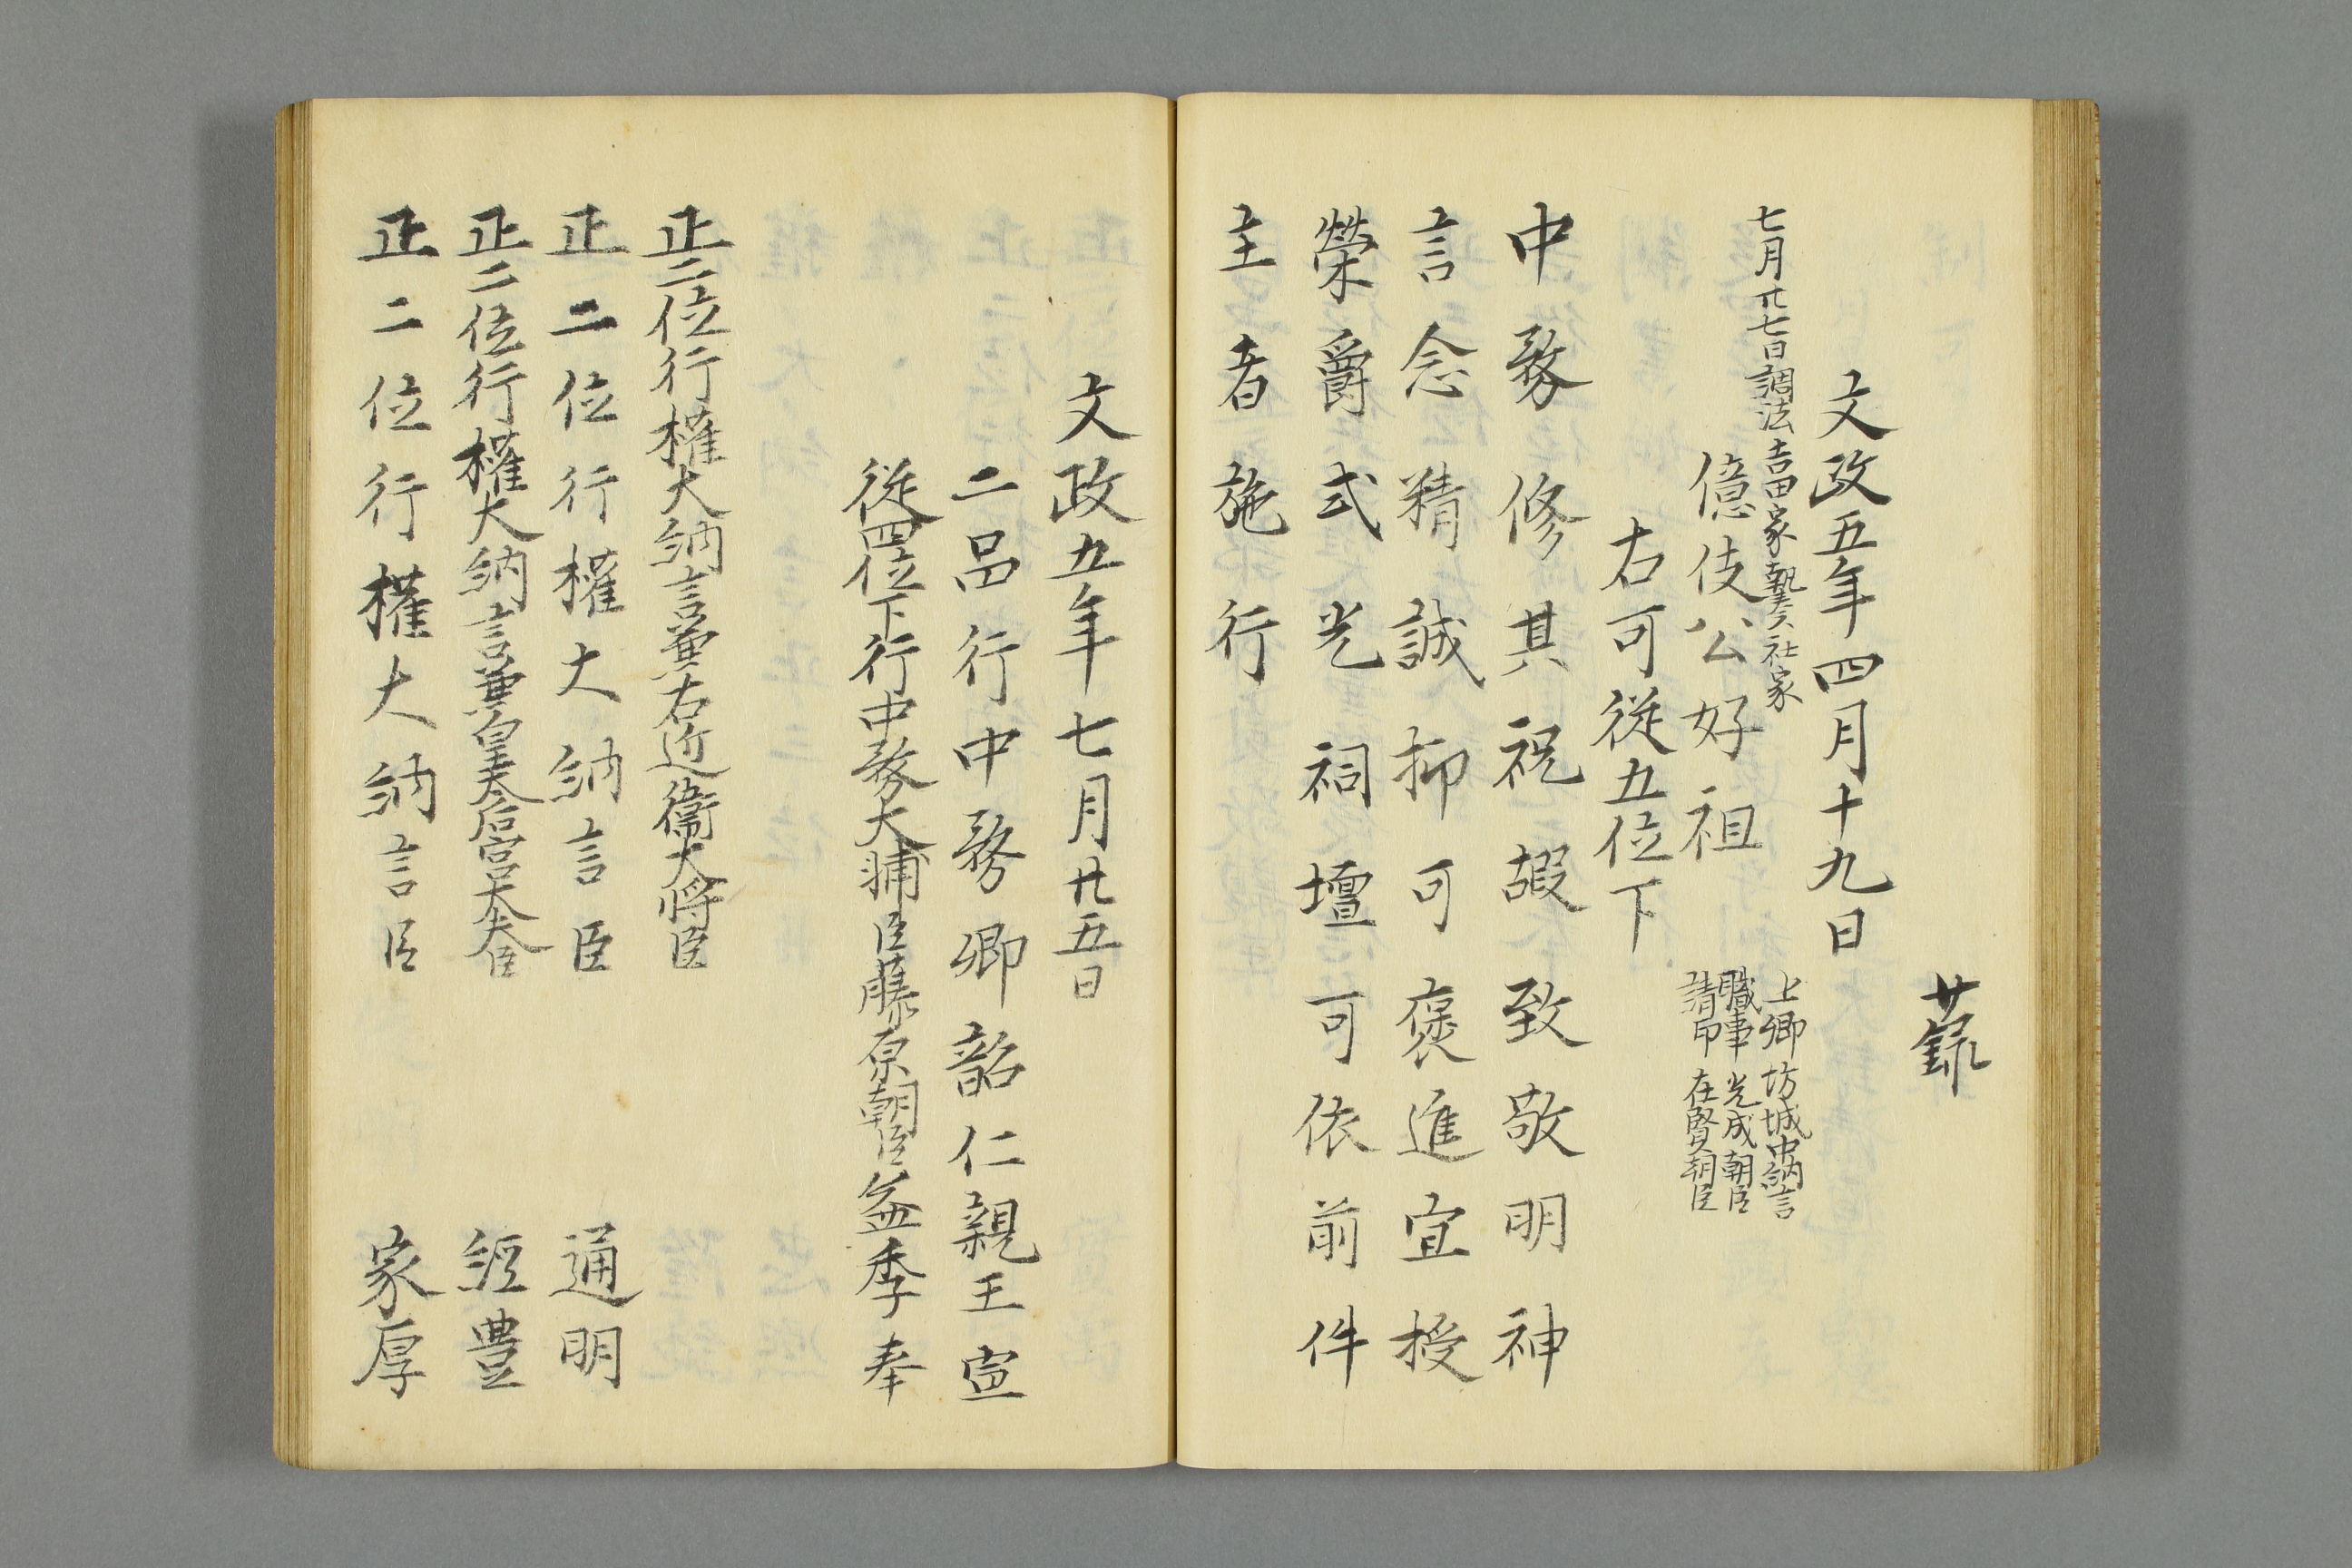 文政五年四月十九日
七月廿七日調法吉田家執奏社家
億伎公好祖
上卿 坊城中納言
職事 光成朝臣
請印 在賢朝臣
右可從五位下
中務修其祝嘏致敬明神
言念精誠抑可褒進宜授
榮爵式光祠壇可依前件
主者施行
文政五年七月廿五日
二品行中務卿韶仁親王宣
從四位下行中務大輔臣藤原朝臣益季奉
正二位行權大納言兼右近衛大将臣
正二位行權大納言臣 通明
正二位行權大納言兼皇太后宮大夫臣 經豊
正二位行權大納言臣 家厚